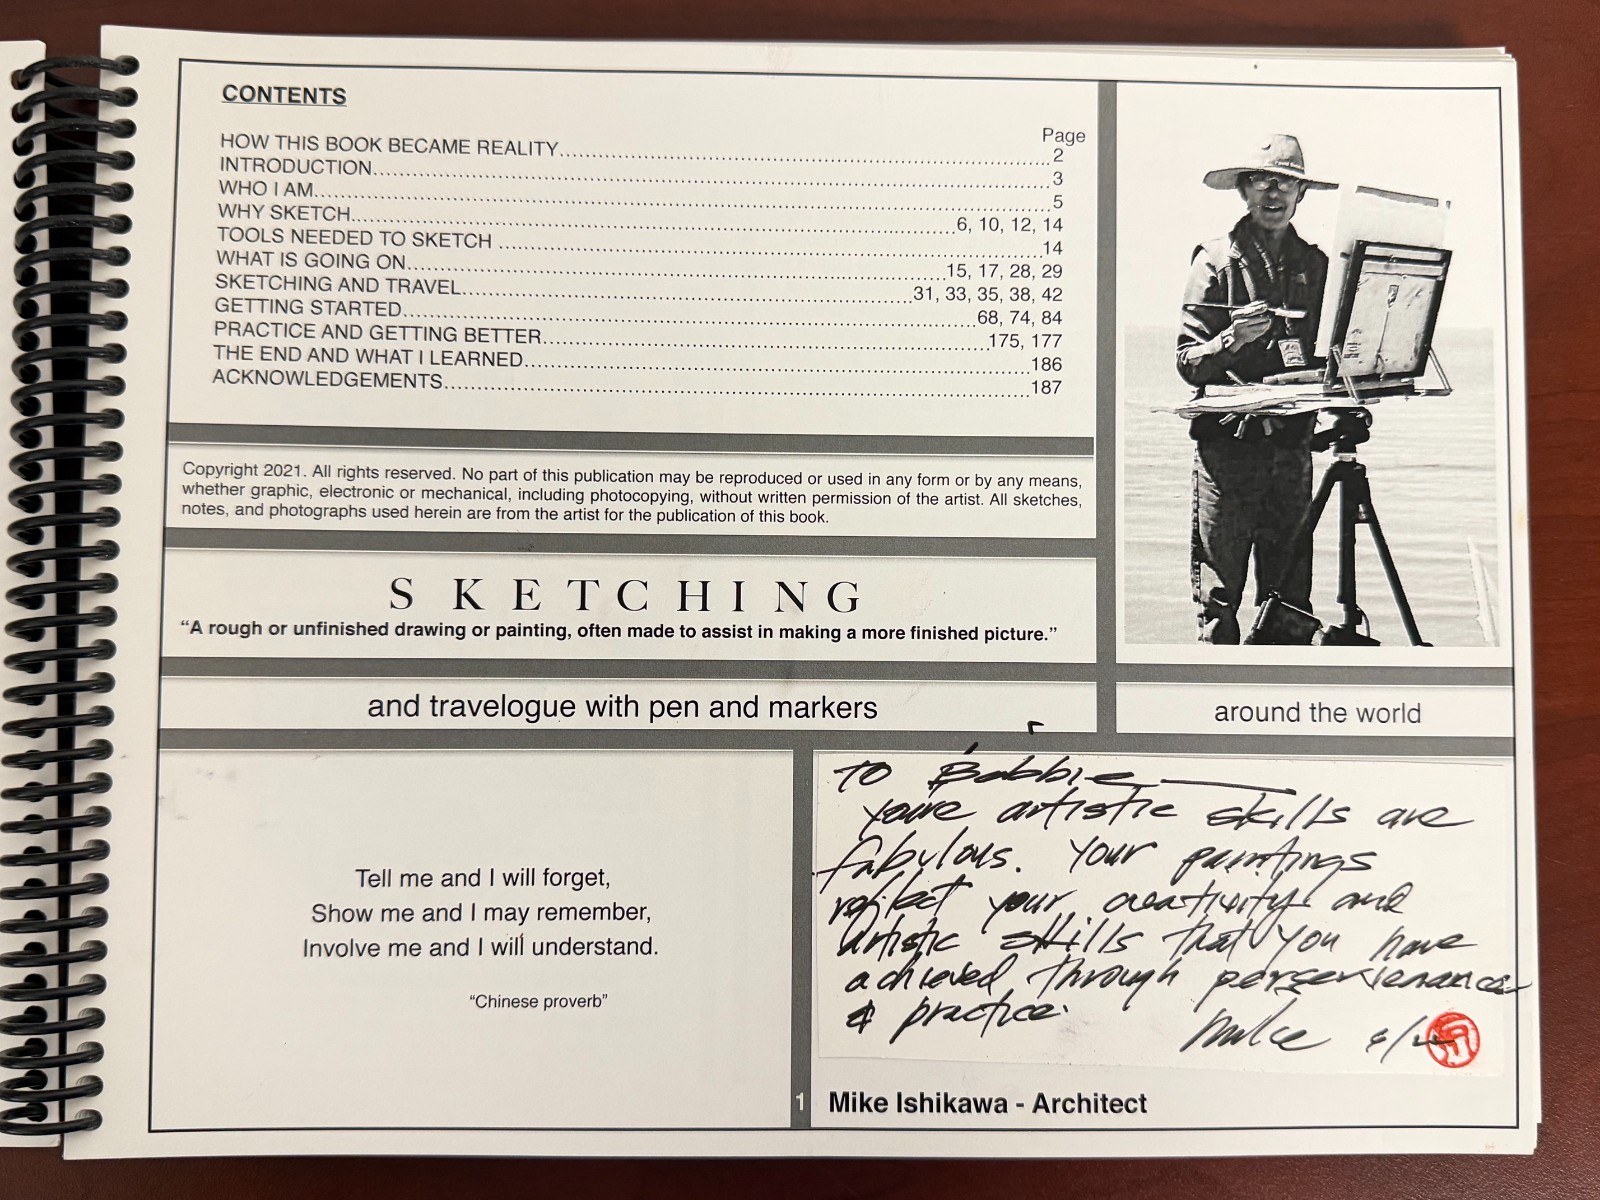 CONTENTS
Page
HOW THIS BOOK BECAME REALITY 2
INTRODUCTION 3
WHO I AM 5
WHY SKETCH 6, 10, 12, 14
TOOLS NEEDED TO SKETCH 14
WHAT IS GOING ON 15, 17, 28, 29
SKETCHING AND TRAVEL 31, 33, 35, 38, 42
GETTING STARTED 68, 74, 84
PRACTICE AND GETTING BETTER 175, 177
THE END AND WHAT I LEARNED 186
ACKNOWLEDGEMENTS 187
Copyright 2021. All rights reserved. No part of this publication may be reproduced or used in any form or by any means,
whether graphic, electronic or mechanical, including photocopying, without written permission of the artist. All sketches,
notes, and photographs used herein are from the artist for the publication of this book.
SKETCHING
“A rough or unfinished drawing or painting, often made to assist in making a more finished picture.”
and travelogue with pen and markers
around the world
Tell me and I will forget,
Show me and I may remember,
Involve me and I will understand.
“Chinese proverb”
To Bobbie
artistic skills are
fabulous. Your paintings
reflect your creativity and
artistic skills that you have
achieved through
& practice.
Mike
1
Mike Ishikawa - Architect